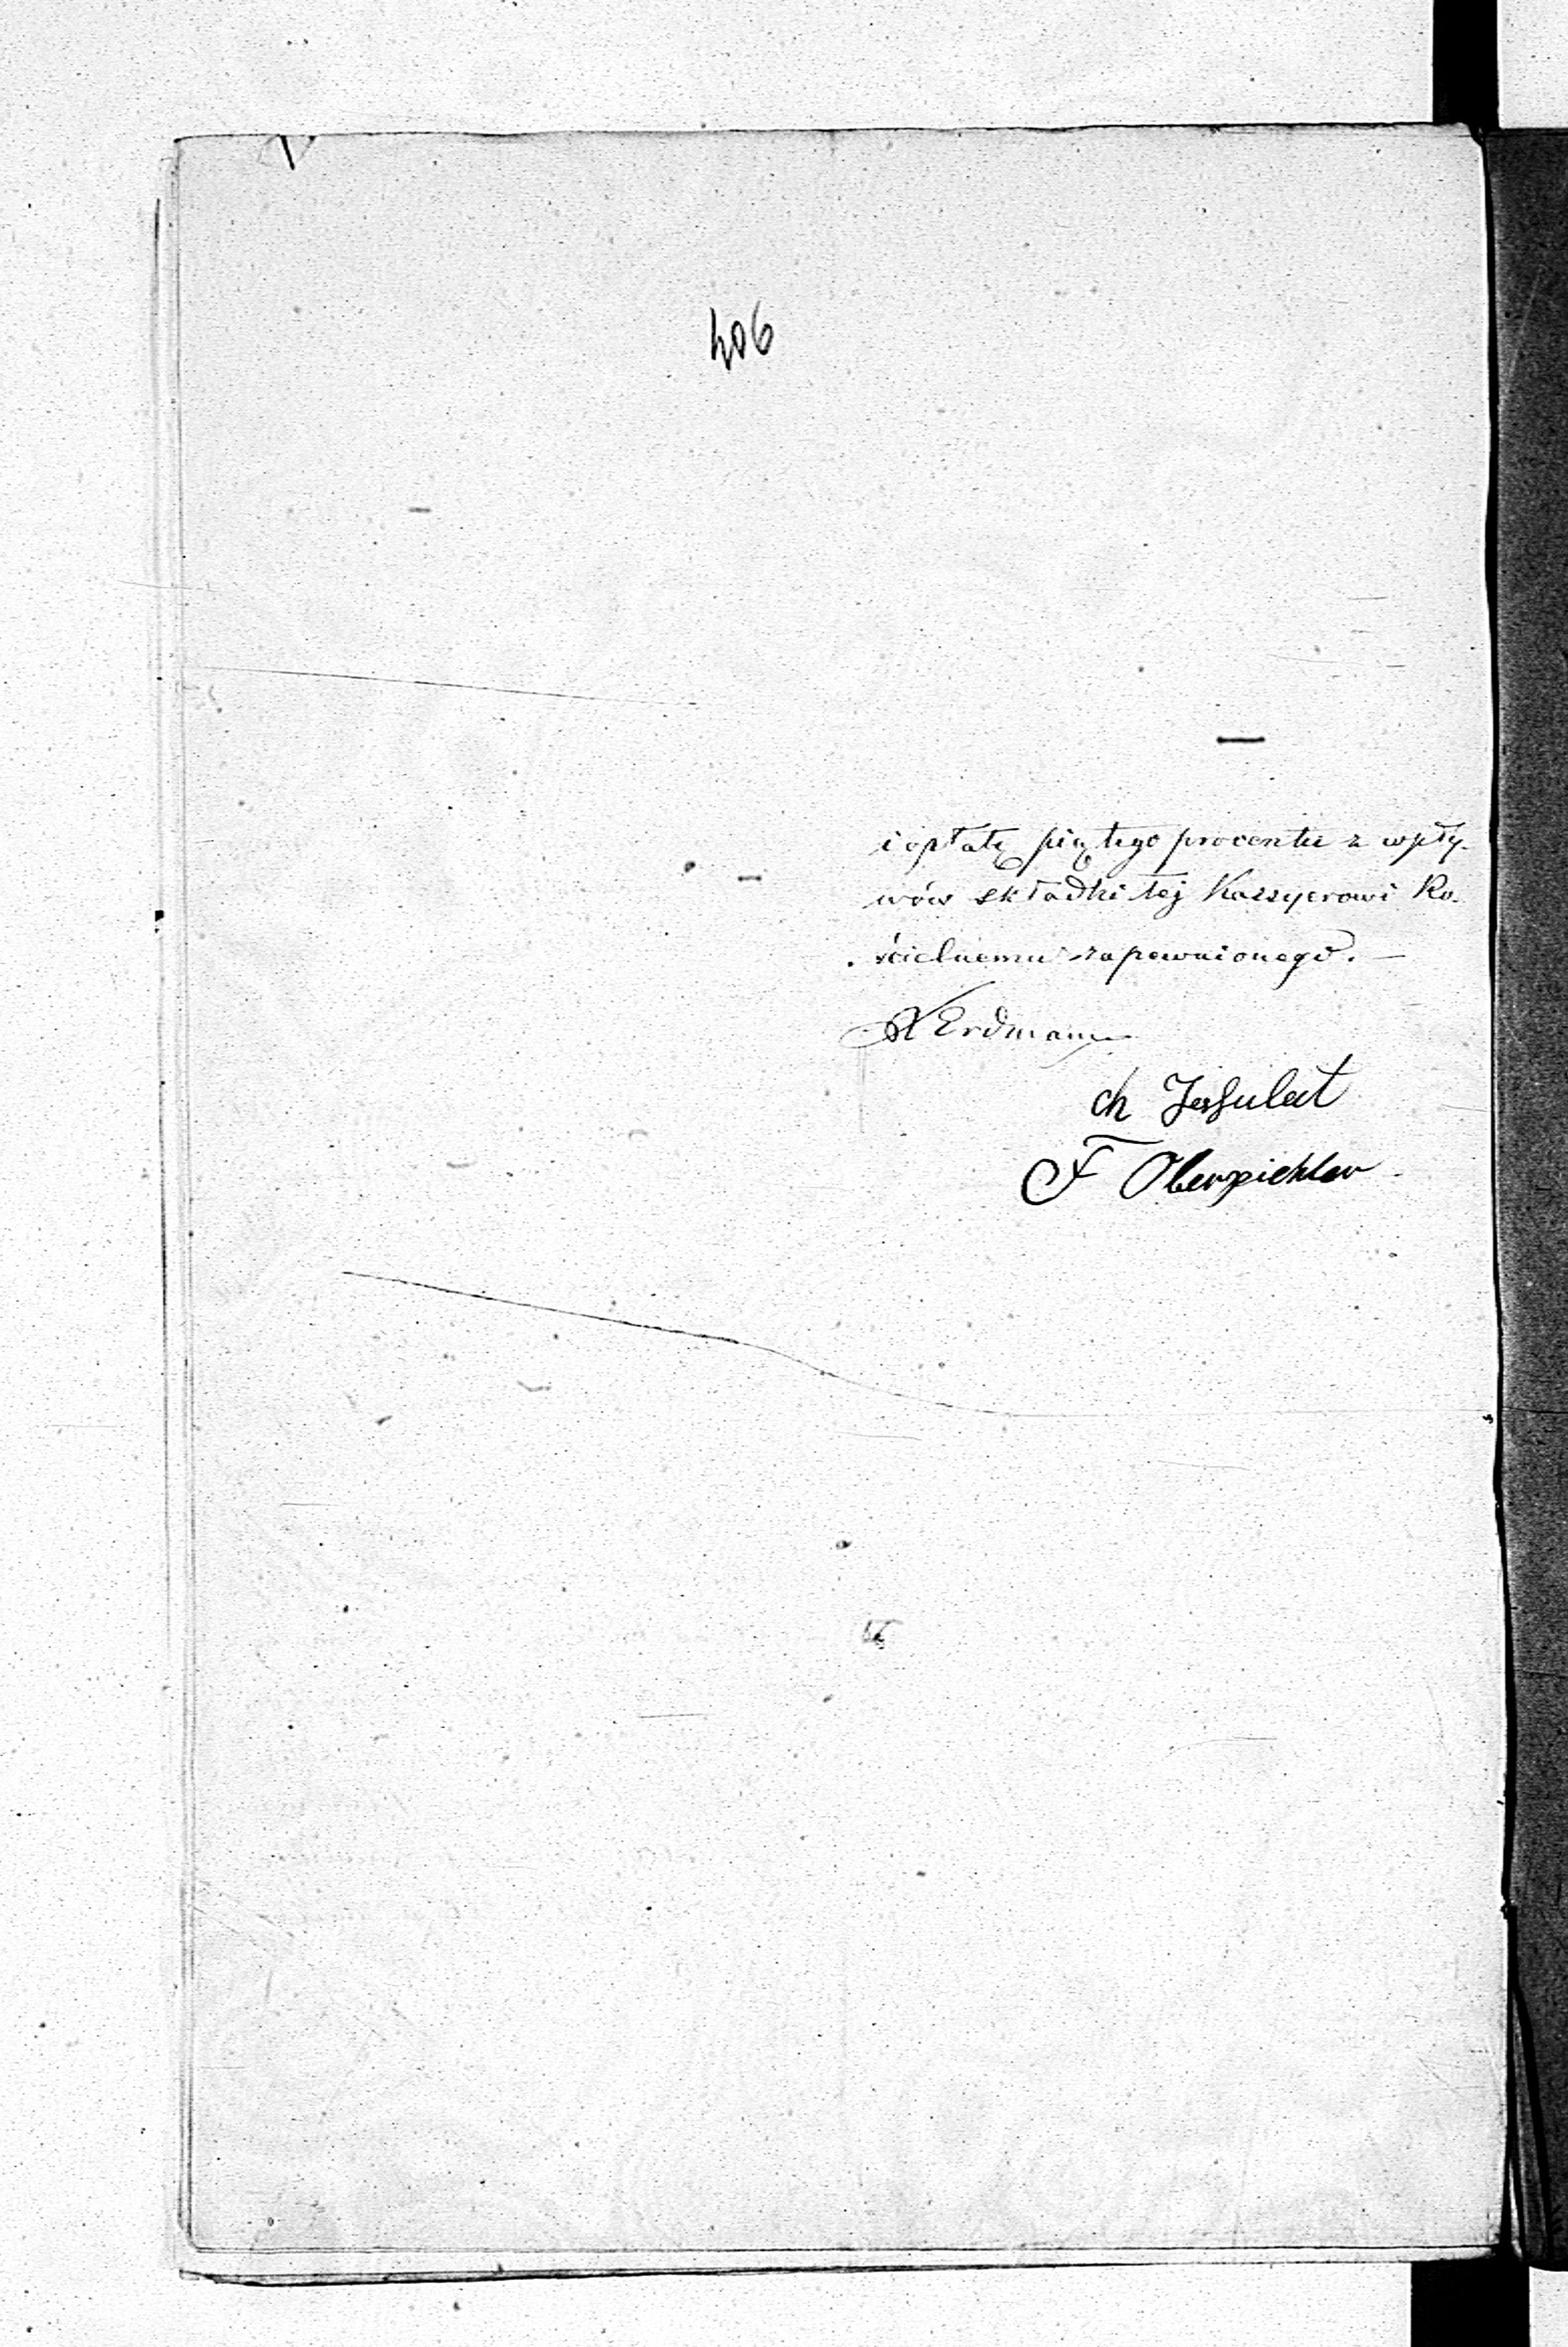 406
i opłatę piątego procentu z wpły-
wów składki tej Kassyerowi Ko-
ścielnemu zapewnionego. —
Erdmann
Ch Jessulat
F Oberpichler